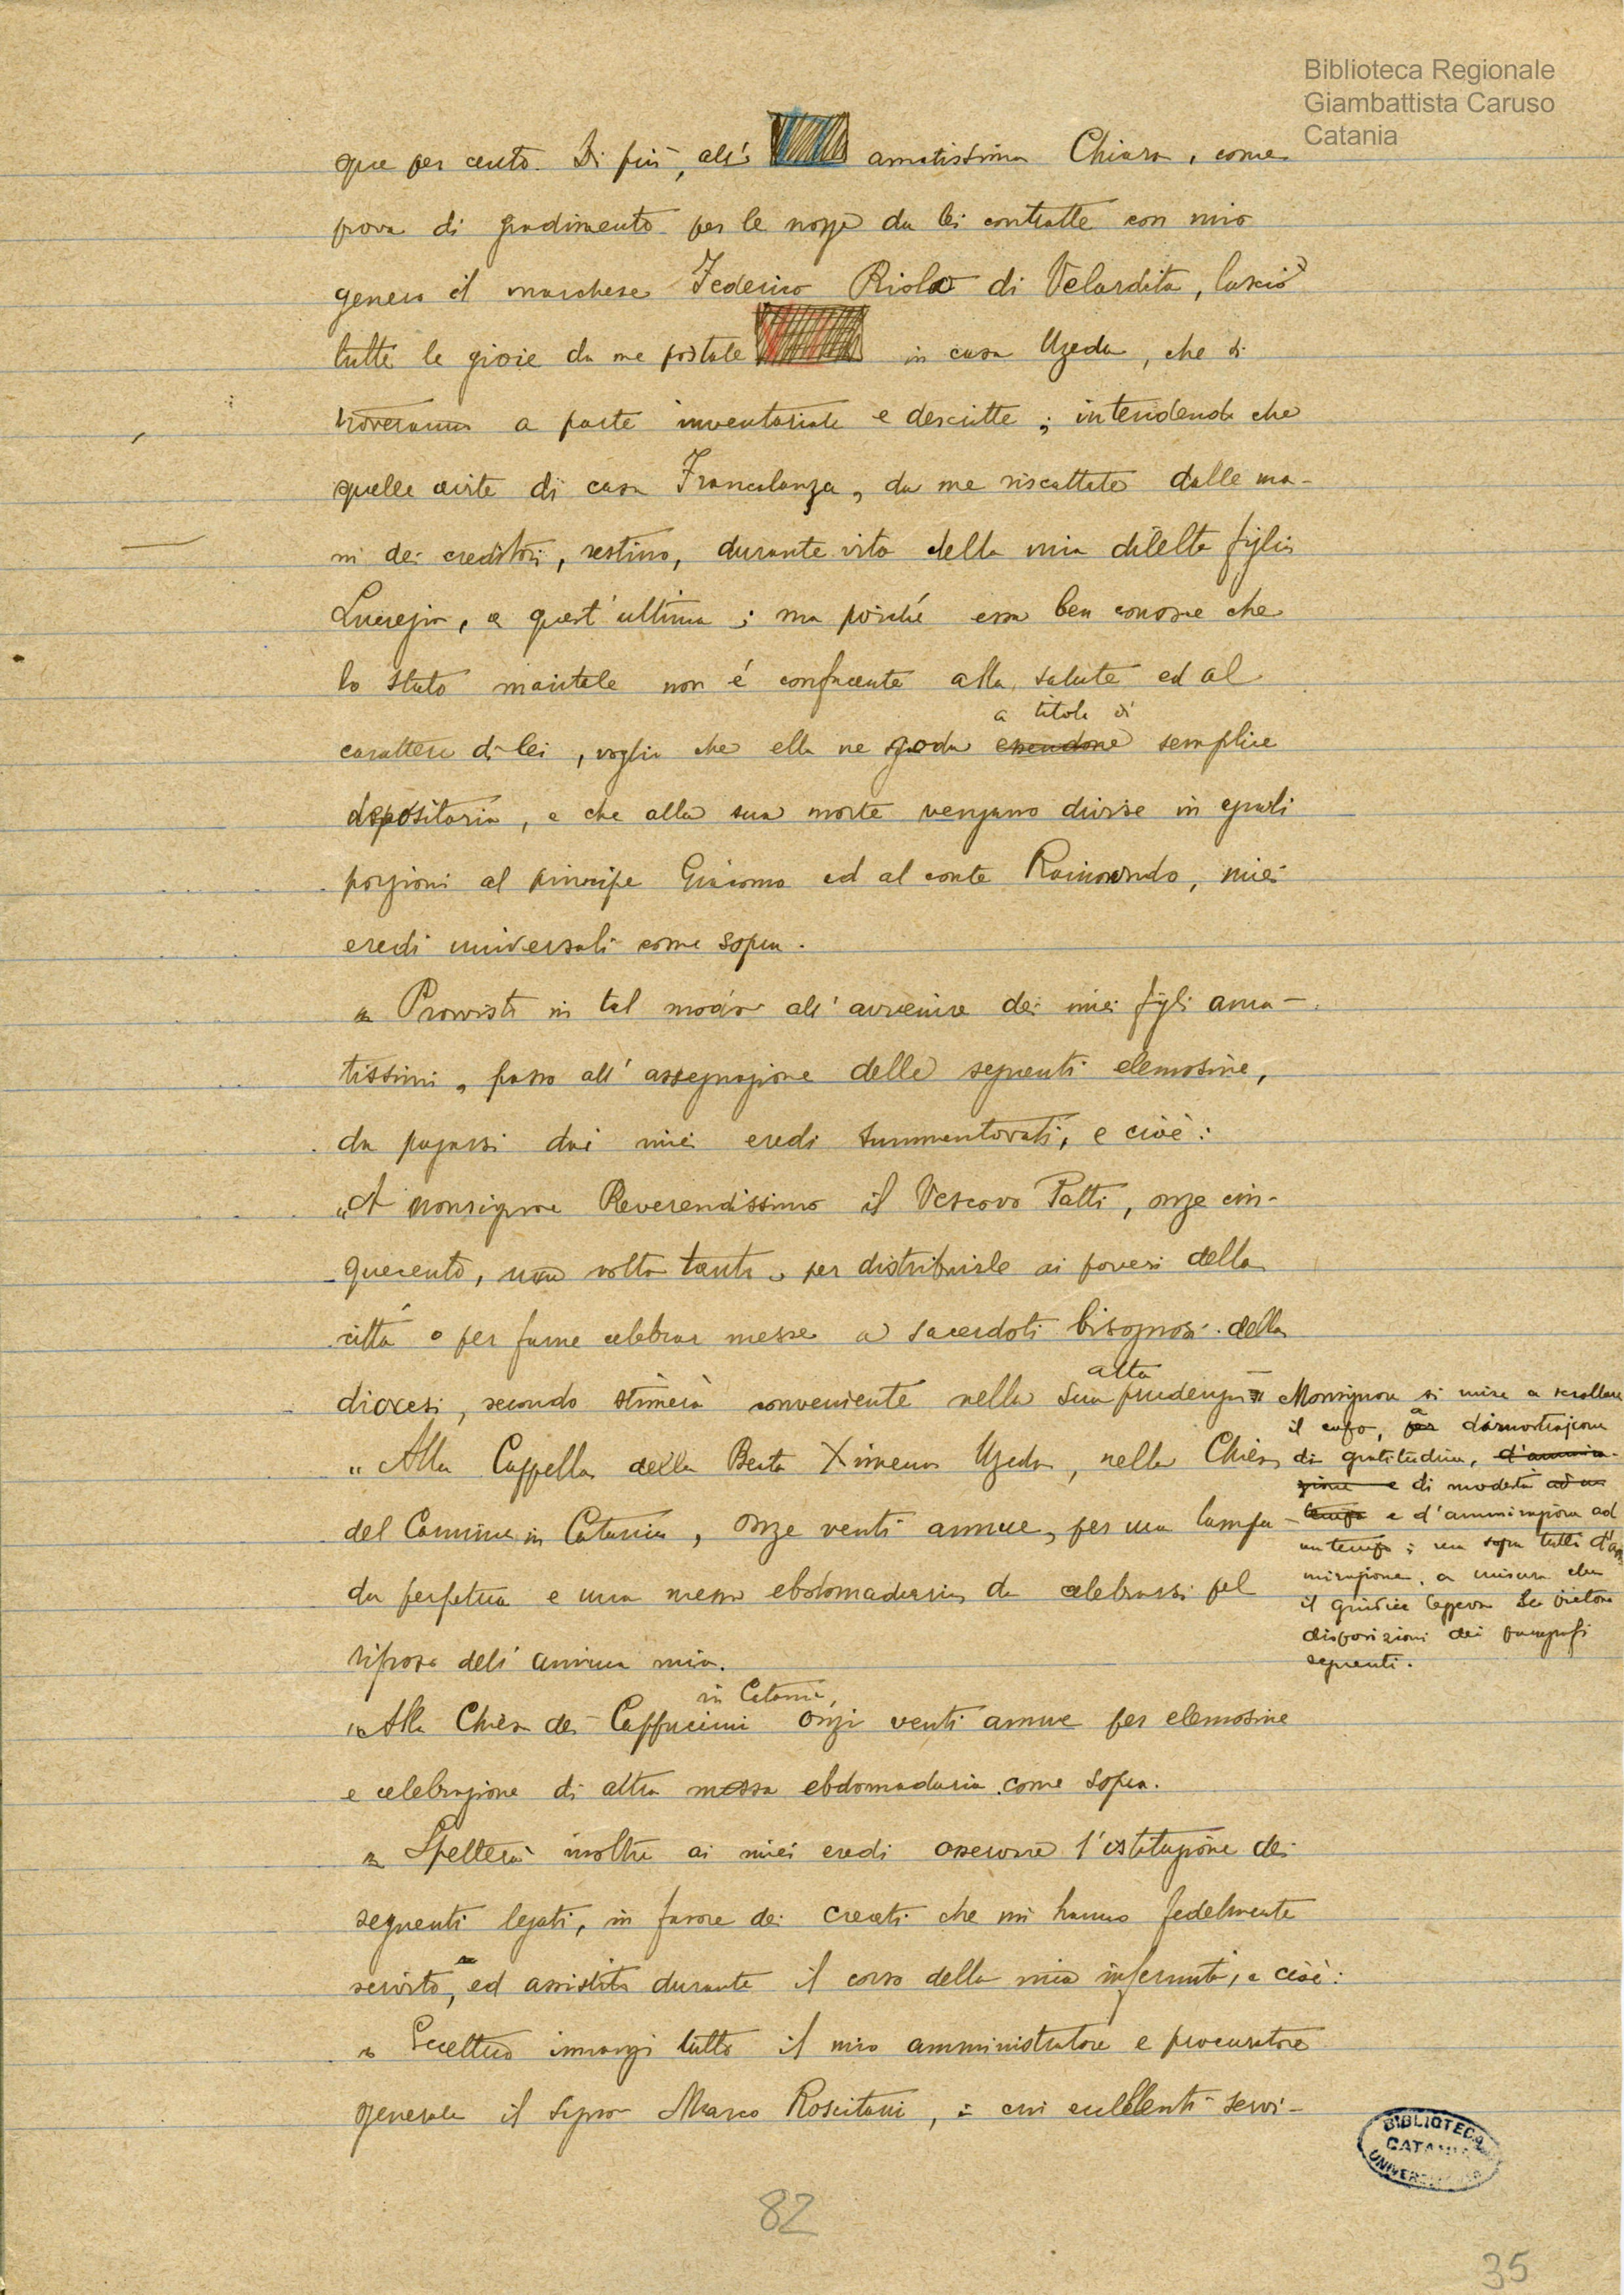 Biblioteca Regionale
Giambattista Caruso
Catania
que per cento. Di più, all' amatissima Chiara, come
prova di gradimento per le nozze da lei contratte con mio
genero il marchese Federico Riolo di Velardita, lascio
tutte le gioie da me portate in casa Uzeda, che si
troveranno a parte inventariate e descritte; intendendo che
quelle avite di casa Francalanza, da me riscattate dalle ma-
ni dei creditori, restino, durante vita della mia diletta figlia
Lucrezia, a quest'ultima; ma poiché essa ben conosce che
lo stato maritale non é confacente alla salute ed al
a titolo di
carattere di lei, voglio che ella ne goda essendone semplice
depositaria, e che alla sua morte vengano divise in eguali
porzioni al principe Giacomo ed al conte Raimondo, miei
eredi universali come sopra.
" Provvisto in tal modo all'avvenire dei miei figli ama-
tissimi, passo all'assegnazione delle seguenti elemosine,
da pagarsi dai miei eredi summentovati, e cioè:
"A monsignore Reverendissimo il Vescovo Patti, onze cin-
quecento, una volta tanto, per distribuirle ai poveri della
città o per farne celebrar messe a sacerdoti bisognosi della
alta
diocesi, secondo stimerà conveniente nella sua prudenza
" Alla Cappella della Beata Ximena Uzeda, nella Chiesa
del Carmine in Catania, onze venti annue, per una lampa-
da perpetua e una messa ebdomadaria da celebrarsi pel
riposo dell'anima mia.
in Catania,
"Alla Chiesa dei Cappuccini onze venti annue per elemosine
e celebrazione di altra messa ebdomadaria come sopra.
" Spetterà inoltre ai miei eredi osservare l'istituzione dei
seguenti legati, in favore dei creati che mi hanno fedelmente
servito, ed assistito durante il corso della mia infermità, e cioè:
" Eccettuo innanzi tutto il mio amministratore e procuratore
generale il Signor Marco Roscitani, i cui eccellenti servi-
Monsignore si mise a scrollare
a
il capo, per dimostrazione
di gratitudine, d'ammira-
zione e di modestia ad un
tempo e d'ammirazione ad
un tempo; ma sopra tutto d'am
mirazione, a misura che
il giudice leggeva le
disposizioni dei paragrafi
seguenti.
BIBLIOTECA
CATANIA
UNIVERSITARIA
82
35